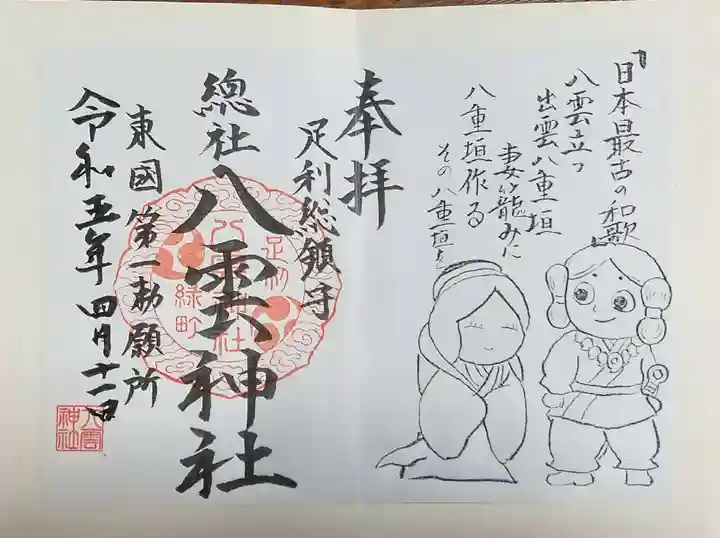 「日本最古の和歌」
八雲立つ
出雲八重垣
妻籠みに
八重垣作る
その八重垣を
奉拝
足利総鎮守
總社八雲神社
東國第一勅願所
令和五年四月十一日
足利
八雲神社
緑町
八雲
神社